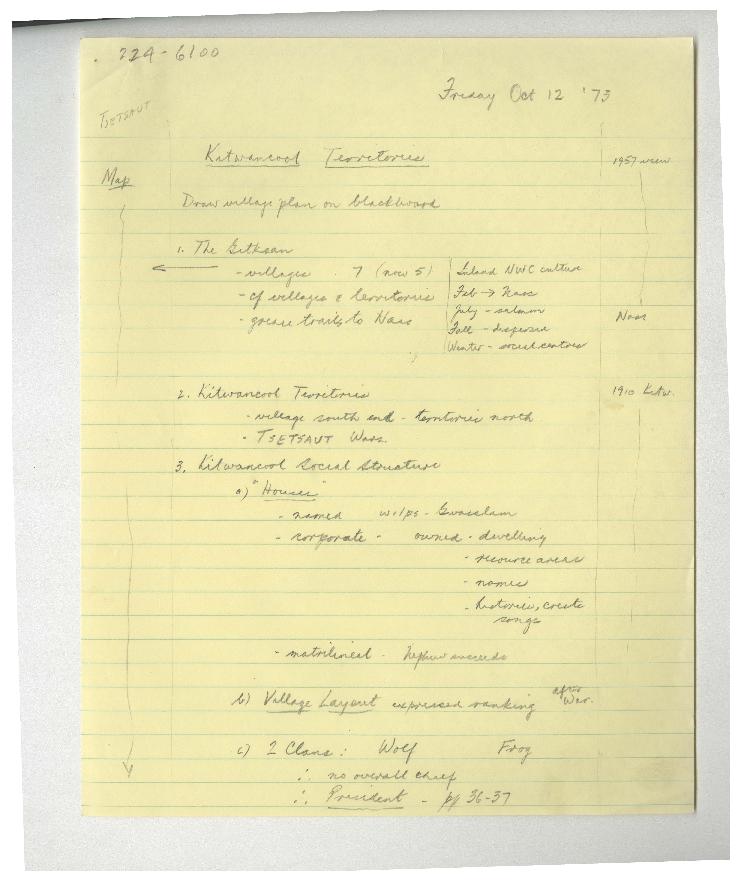 224-6100
Friday Oct 12 '73
TSETSAUT
Kitwancool Territories
1957
Map
Draw village plan on blackboard
1. The Gitksan
- villages 7 (now 5)
- cf villages & territories
- grease trails to Nass
Inland NWC culture
Feb → Nass
July - salmon
Fall - dispersed
Winter - social centres
Nass
2. Kitwancool Territories
1910 Kitw.
- village south end - territories north
- TSETSAUT Wars.
3. Kitwancool Social Structure
a) "Houses"
- named wilps - Gwasslam
- corporate - owned - dwelling
- resource areas
- names
- histories, crests
songs
- matrilineal - nephew succeeds
b) Village Layout expressed ranking after War.
c) 2 Clans: Wolf Frog
∴ no overall chief
∴ President - pp 36-37